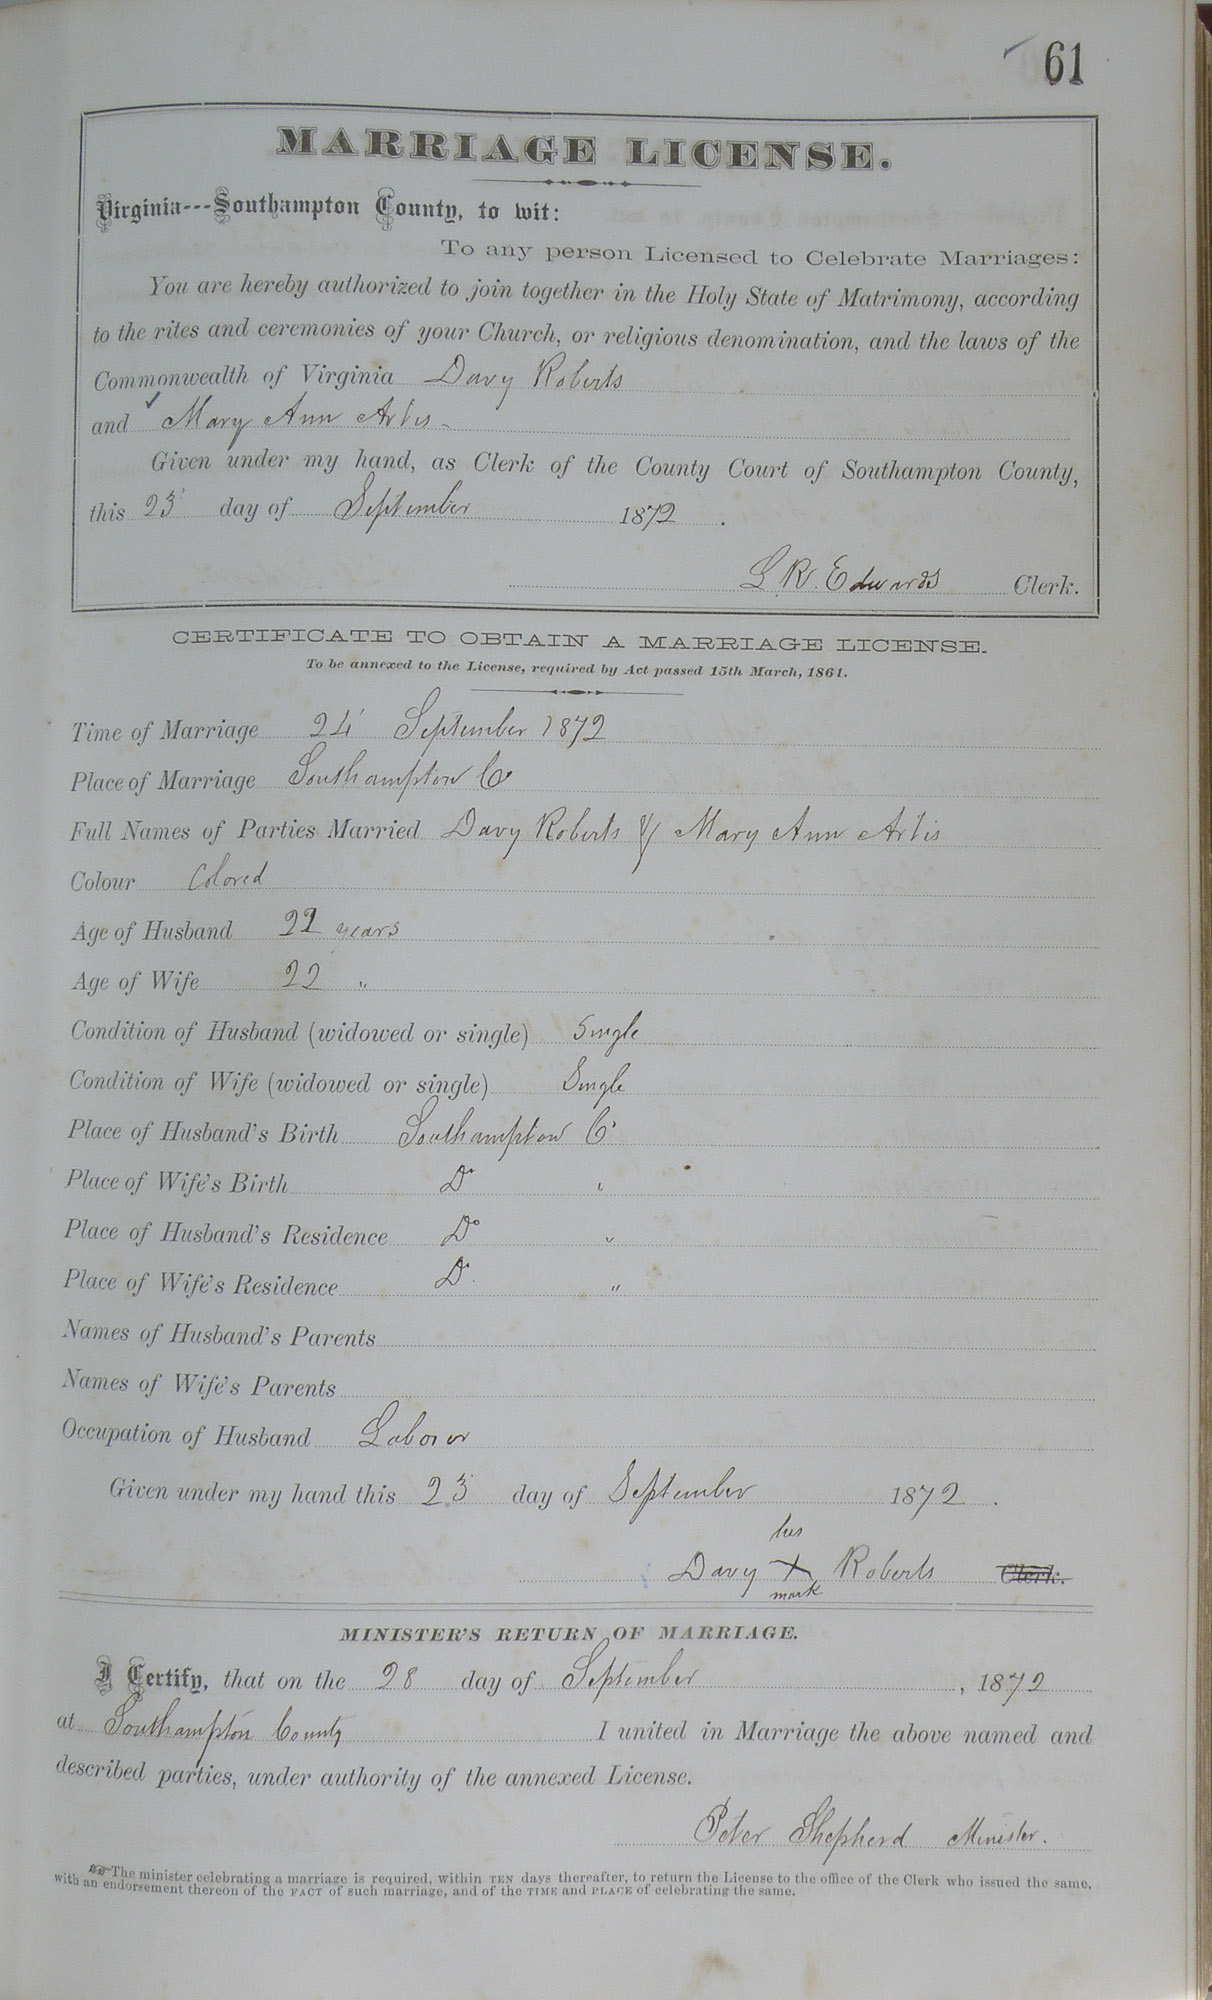 61
MARRIAGE LICENSE.
Virginia---Southampton County, to wit:
To any person Licensed to Celebrate Marriages:
You are hereby authorized to join together in the Holy State of Matrimony, according
to the rites and ceremonies of your Church, or religious denomination, and the laws of the
Commonwealth of Virginia Davy Roberts
and Mary Ann Artis
Given under my hand, as Clerk of the County Court of Southampton County,
this 23 day of September 1872.
L. R. Edwards Clerk.
CERTIFICATE TO OBTAIN A MARRIAGE LICENSE.
To be annexed to the License, required by Act passed 15th March, 1861.
Time of Marriage 24 September 1872
Place of Marriage Southampton Co
Full Names of Parties Married Davy Roberts & Mary Ann Artis
Colour Colored
Age of Husband years
Age of Wife 22 "
Condition of Husband (widowed or single) Single
Condition of Wife (widowed or single) Single
Place of Husband's Birth Southampton Co
Place of Wife's Birth Do "
Place of Husband's Residence Do "
Place of Wife's Residence Do "
Names of Husband's Parents
Names of Wife's Parents
Occupation of Husband Laborer
Given under my hand this 23 day of September 1872.
his
Davy X Roberts Clerk.
mark
MINISTER'S RETURN OF MARRIAGE.
I Certify, that on the 28 day of September, 1872
at Southampton County I united in Marriage the above named and
described parties, under authority of the annexed License.
Peter Shepherd Minister.
☞The minister celebrating a marriage is required, within TEN days thereafter, to return the License to the office of the Clerk who issued the same,
with an endorsement thereon of the FACT of such marriage, and of the TIME and PLACE of celebrating the same.